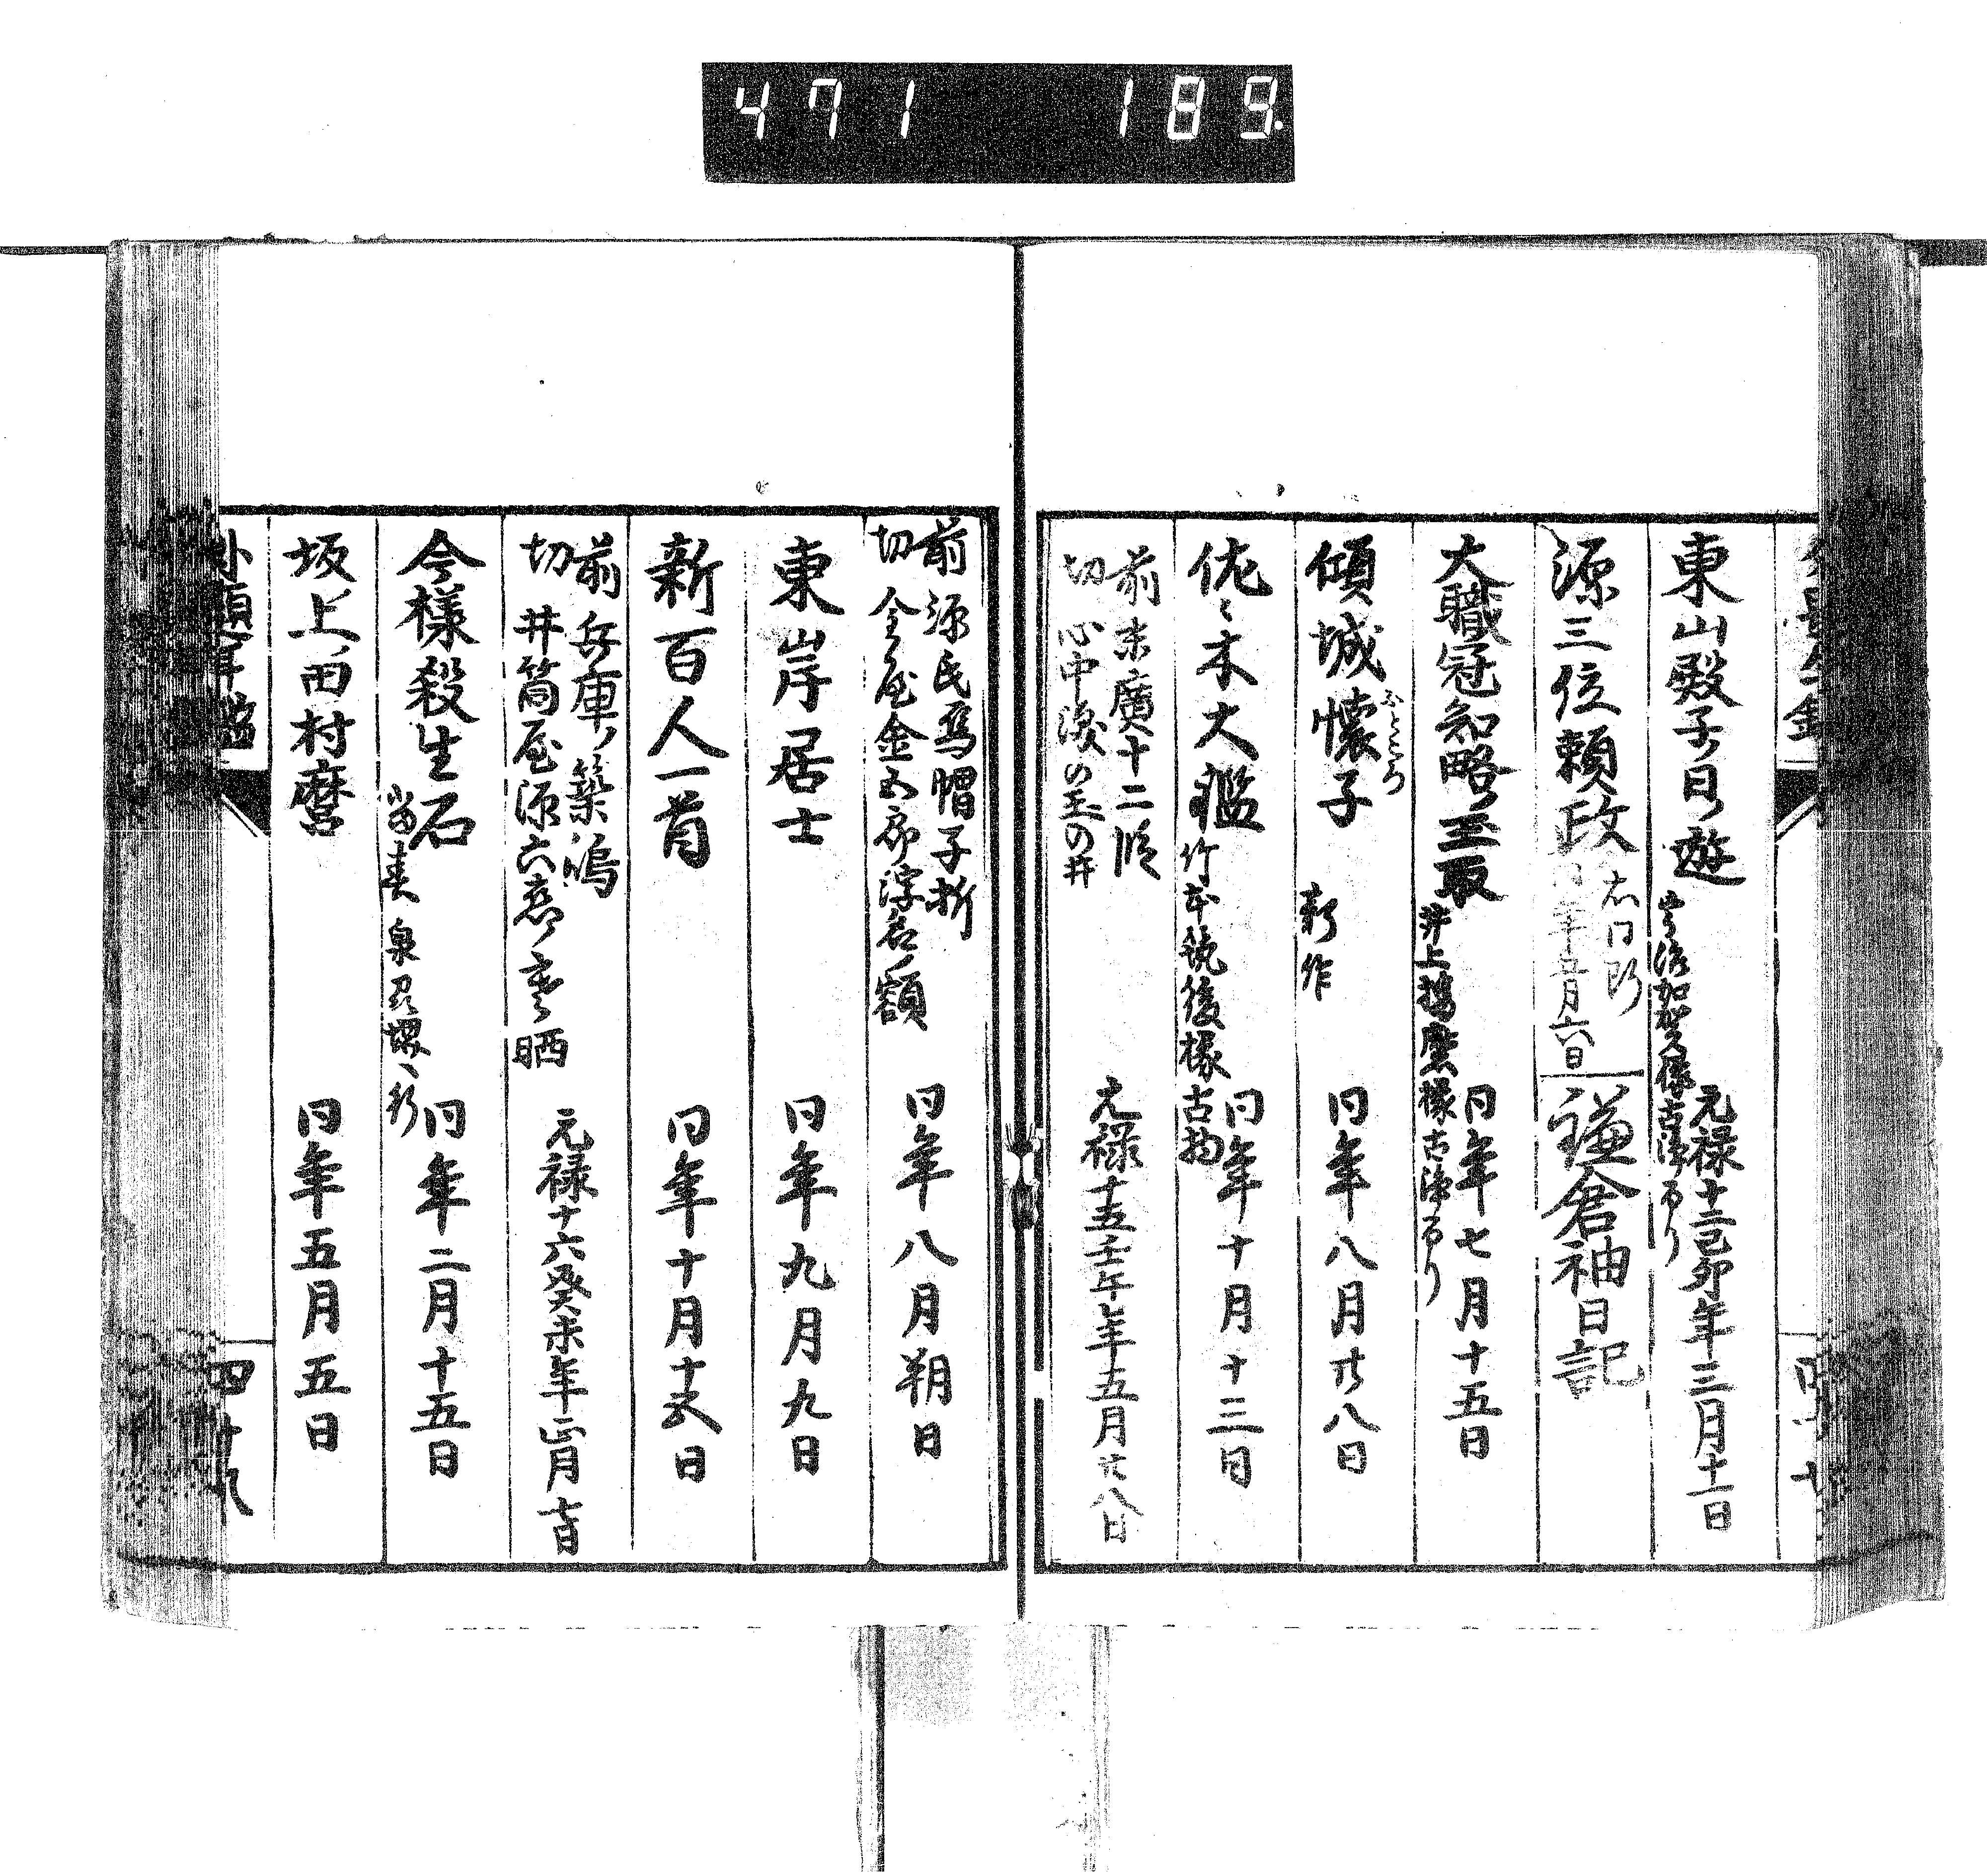 471 189.
東山殿子ノ日ノ遊 宇治加賀掾古浄るり 元禄十二己卯年三月十二日
源三位頼政 右同断 同年五月六日 鎌倉袖日記
大職冠知略玉取 井上播磨掾古浄るり 同年七月十五日
傾城懐子 ふところ 新作 同年八月廿八日
佐々木大鑑 竹本筑後掾古物 同年十月十三日
前 末廣十二段
切 心中涙の玉の井 元禄十五壬午年五月廿八日
前 源氏烏帽子折
切 金屋金五郎浮名ノ額 同年八月朔日
東岸居士 同年九月九日
新百人一首 同年十月十五日
前 兵庫ノ築嶋
切 井筒屋源六恋ノ寒晒 元禄十六癸未年正月
今様殺生石 当春 泉刕堺ニ 同年二月十五日
坂上田村麿 同年五月五日
四十九